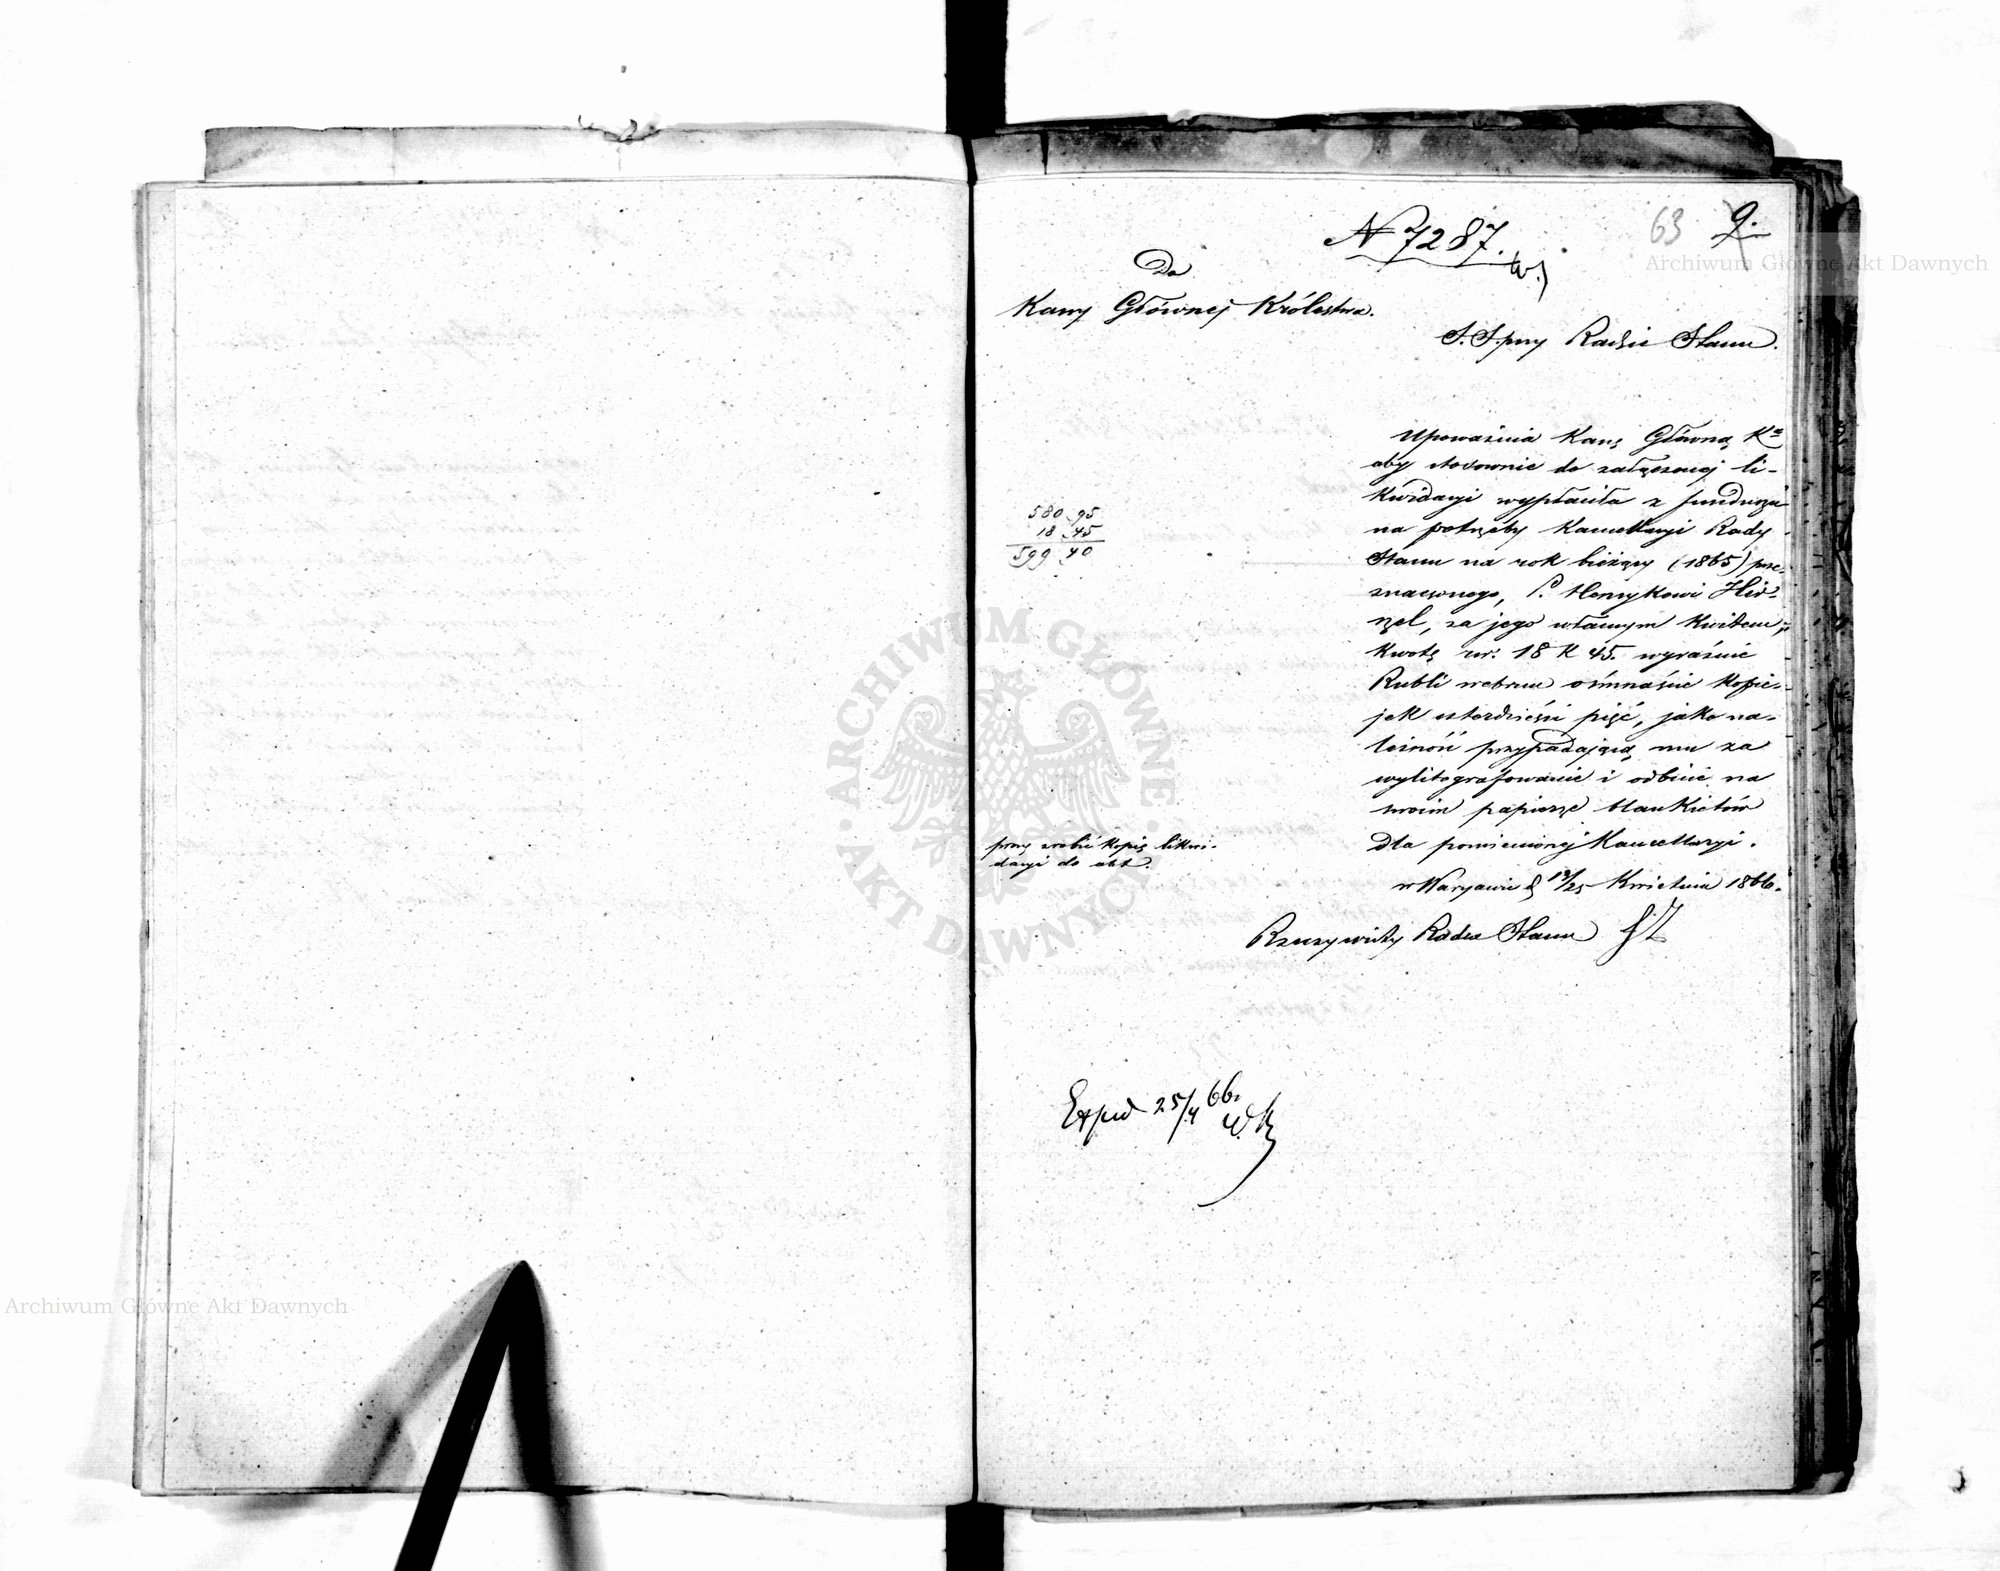 63 9.
N 7287.
Do
Kassy Głównej Królestwa.
S. S. przy Radzie Stanu.
Upoważnia Kassę Główną Kª
aby stosownie do załączonej li-
kwidacyi wypłaciła z funduszu
na potrzeby Kancellaryi Rady
Stanu na rok bieżący (1865) prze-
znaczonego, P. Henrykowi Hir-
szel, za jego własnym kwitem,
kwotę rsr. 18 k 45. wyraźnie
Rubli srebrem ośmnaście kopie-
jek czterdzieści pięć, jako na-
leżność przypadającą mu za
wylitografowanie i odbicie na
swoim papierze blankietów
dla pomienionej Kancellaryi.
w Warszawie d 13/25 Kwietnia 1866.
Rzeczywisty Radca Stanu
580 95
18 45
599 40
proszę zrobić kopię likwi-
dacyi do akt.
Exped 25/4 66.
ARCHIWUM GŁÓWNE
AKT DAWNYCH
Archiwum Główne Akt Dawnych
Archiwum Główne Akt Dawnych